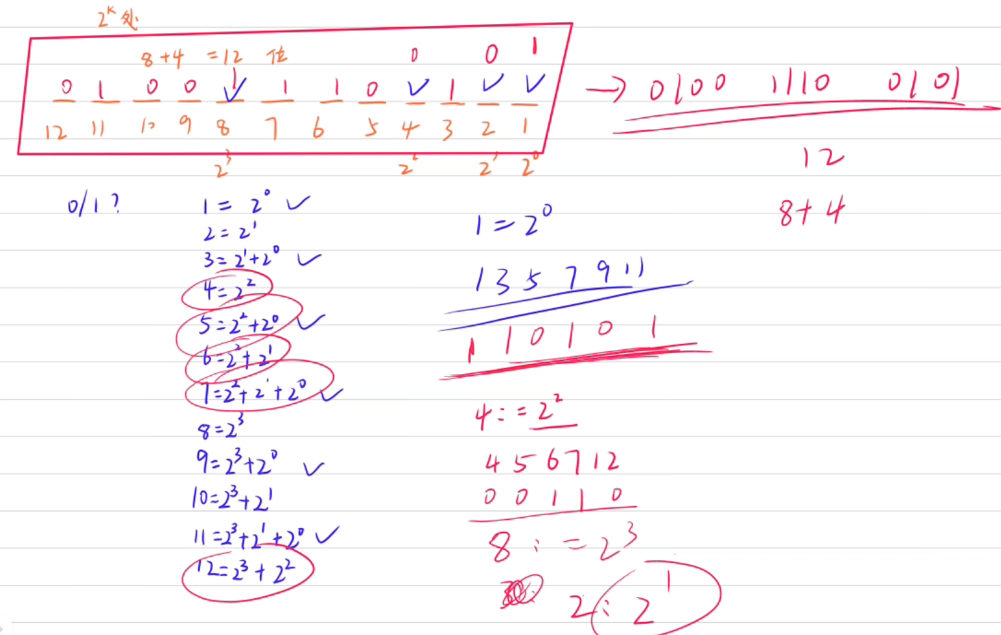 2^k 处
8+4 =12 位
1 0 0 1
0 1 0 0 ✓ 1 1 0 ✓ 1 ✓ ✓ → 0100 1110 0101
12 11 10 9 8 7 6 5 4 3 2 1
2^3 2^2 2^1 2^0
12
8+4
0/1?
1 = 2^0 ✓
2 = 2^1
3 = 2^1+2^0 ✓
4 = 2^2
5 = 2^2+2^0 ✓
6 = 2^2+2^1
7 = 2^2+2^1+2^0 ✓
8 = 2^3
9 = 2^3+2^0 ✓
10 = 2^3+2^1
11 = 2^3+2^1+2^0 ✓
12 = 2^3+2^2
1 = 2^0
1 3 5 7 9 11
1 1 0 1 0 1
4 : = 2^2
4 5 6 7 12
0 0 1 1 0
8 : = 2^3
2 : 2^1